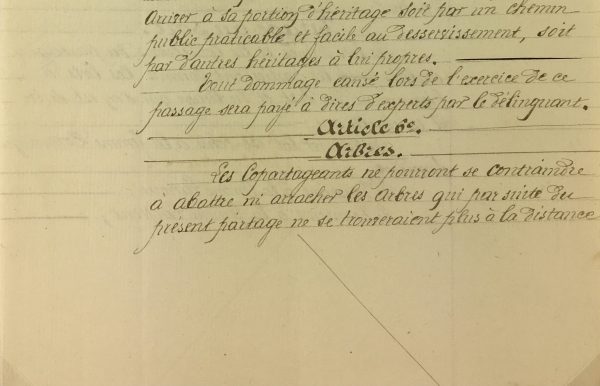 arriver à sa portion d'héritage soit par un chemin
public praticable et facile au desservissement, soit
par d'autres héritages à lui propres.
Tout dommage causé lors de l'exercice de ce
passage sera payé à dires d'experts par le délinquant.
Article 6e.
Arbres.
Les Copartageants ne pourront se contraindre
à abattre ni arracher les arbres qui par suite du
présent partage ne se trouveraient plus à la distance